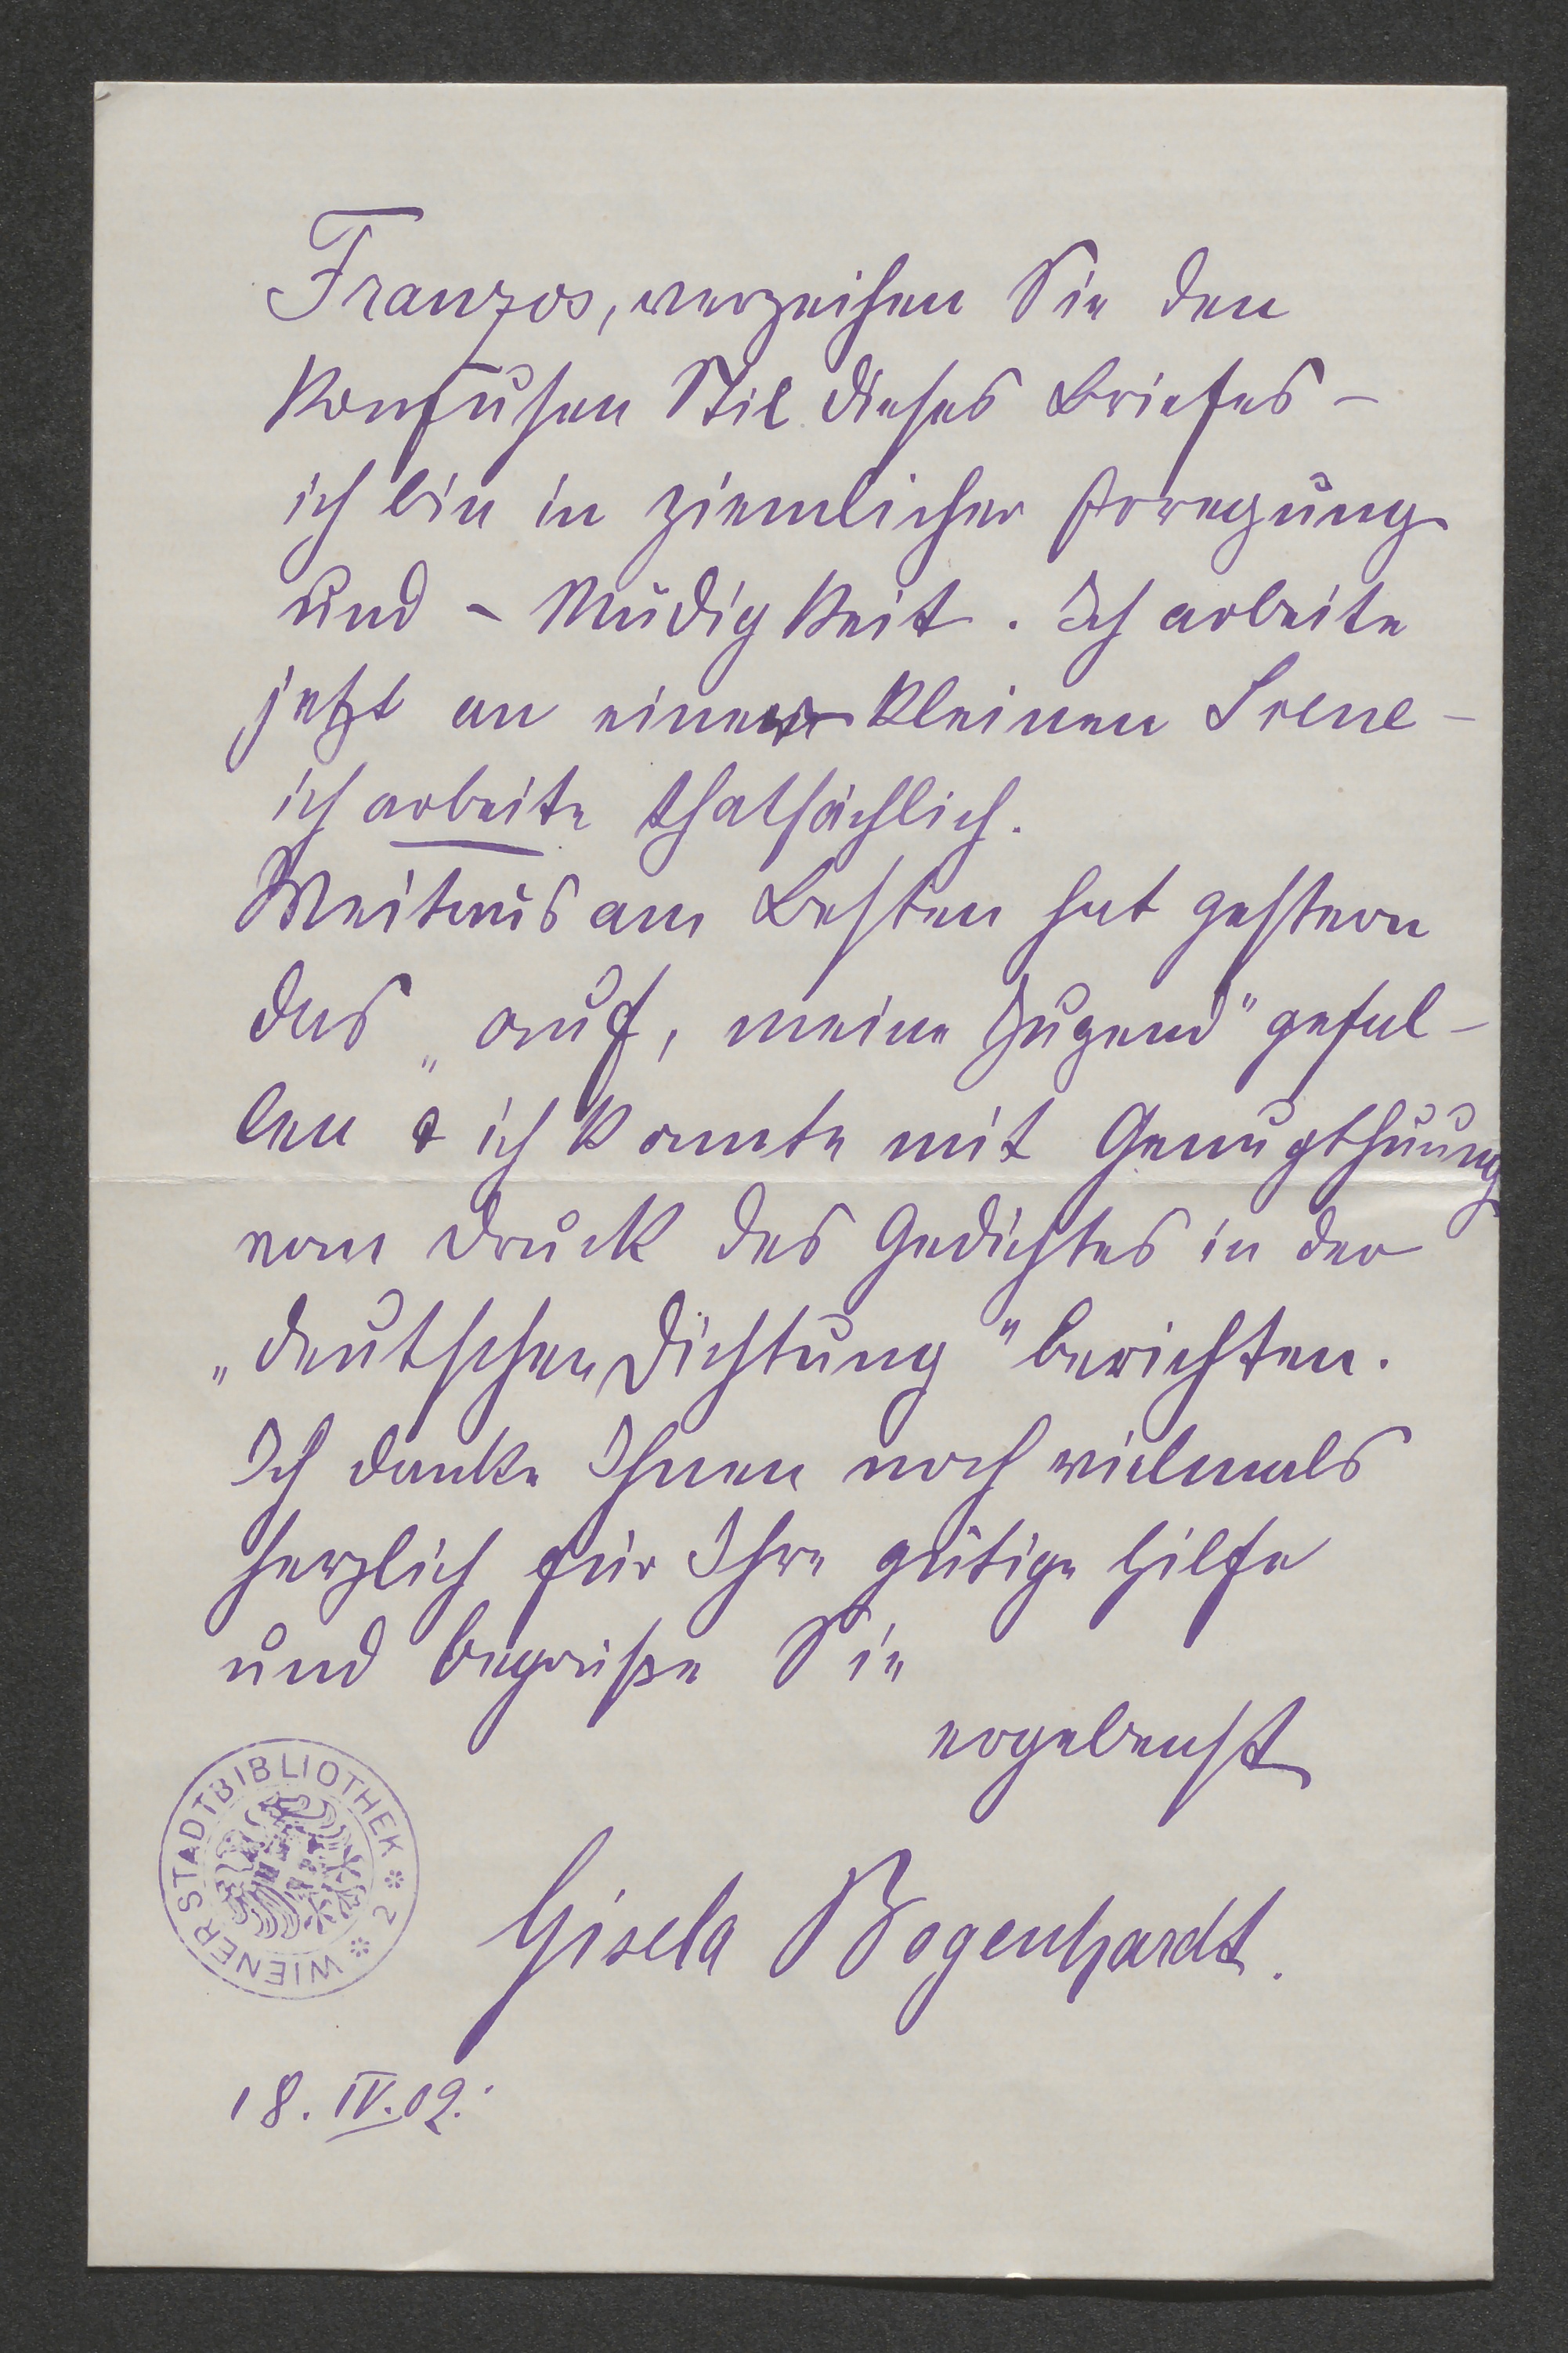 Franzos, verzeihen Sie den
konfusen Stil dieses Briefes –
ich bin in ziemlicher Erregung
und – Müdigkeit. Ich arbeite
jetzt an einer kleinen Scene –
ich arbeite thatsächlich.
Weitaus am Besten hat gestern
das „Auf, meine Jugend" gefal-
len & ich konnte mit Genugthuung
vom Druck des Gedichtes in der
„Deutschen Dichtung" berichten.
Ich danke Ihnen noch vielmals
herzlich für Ihre gütige Hilfe
und begrüße Sie
ergebenst
Gisela Bogenhardt.
WIENER STADTBIBLIOTHEK * 2 *
18. IV. 02.